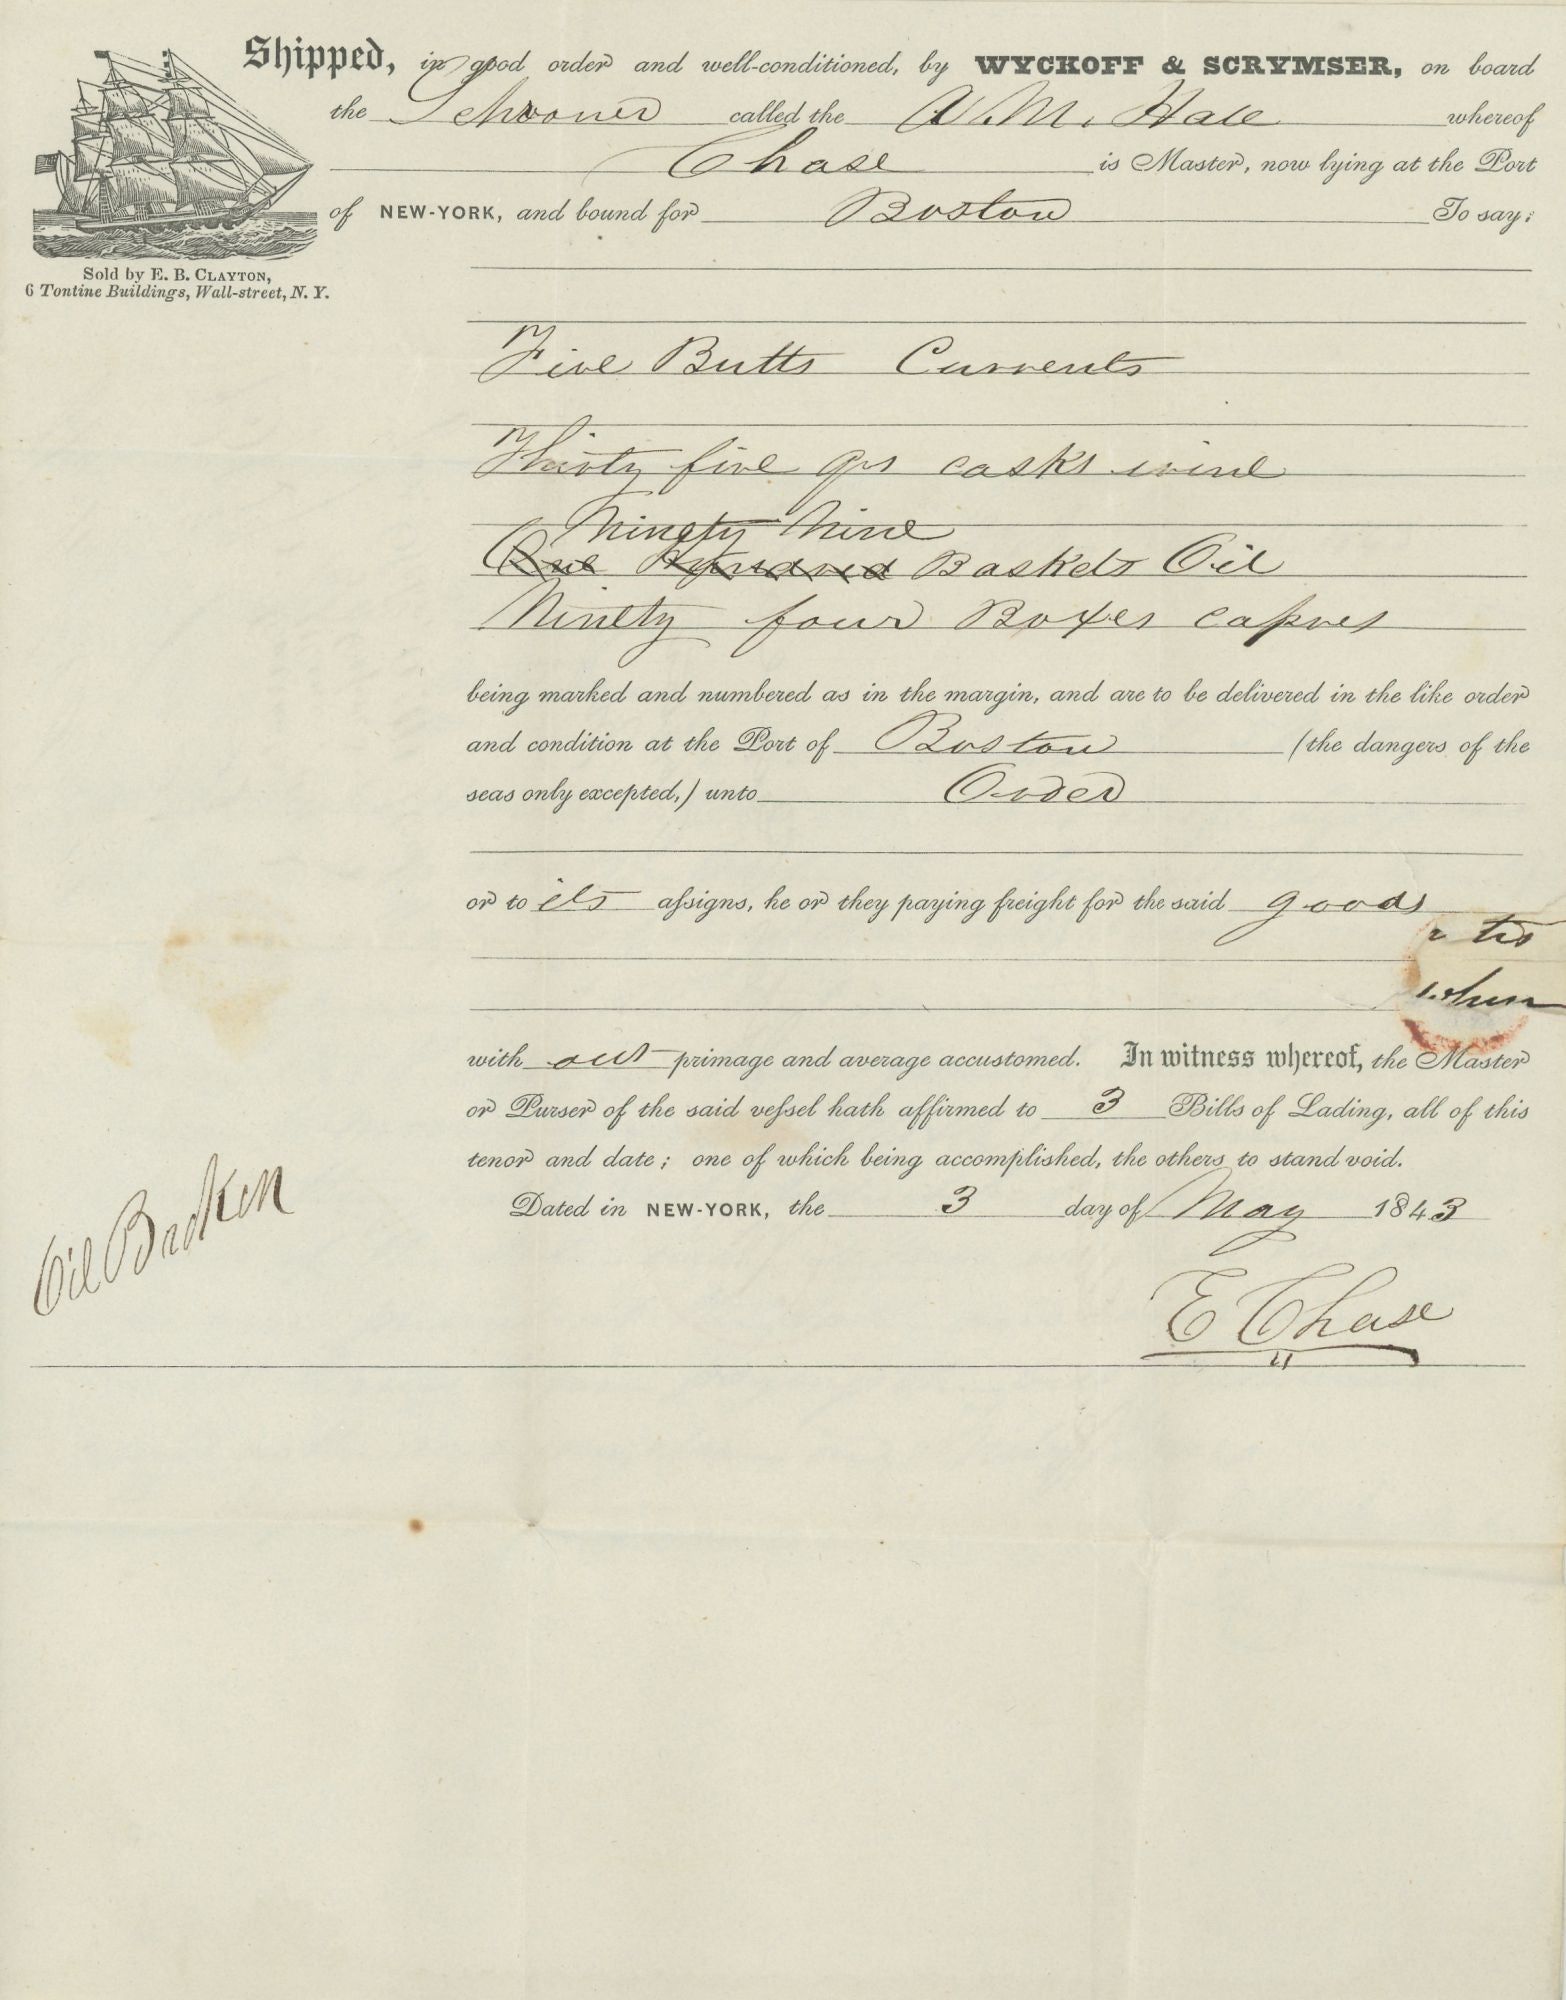 Shipped, in good order and well-conditioned, by WYCKOFF & SCRYMSER, on board
the Schooner called the A. M. Hale whereof
Chase is Master, now lying at the Port
of NEW-YORK, and bound for Boston To say:
Sold by E. B. CLAYTON,
6 Tontine Buildings, Wall-street, N. Y.
Five Butts Currents
Thirty five qrs casks wine
Ninety Nine
One Hundred Baskets Oil
Ninety four Boxes capres
being marked and numbered as in the margin, and are to be delivered in the like order
and condition at the Port of Boston (the dangers of the
seas only excepted,) unto Order
or to its assigns, he or they paying freight for the said goods
with out primage and average accustomed. In witness whereof, the Master
or Purser of the said vessel hath affirmed to 3 Bills of Lading, all of this
tenor and date; one of which being accomplished, the others to stand void.
Dated in NEW-YORK, the 3 day of May 1843
Oil Broken
E Chase